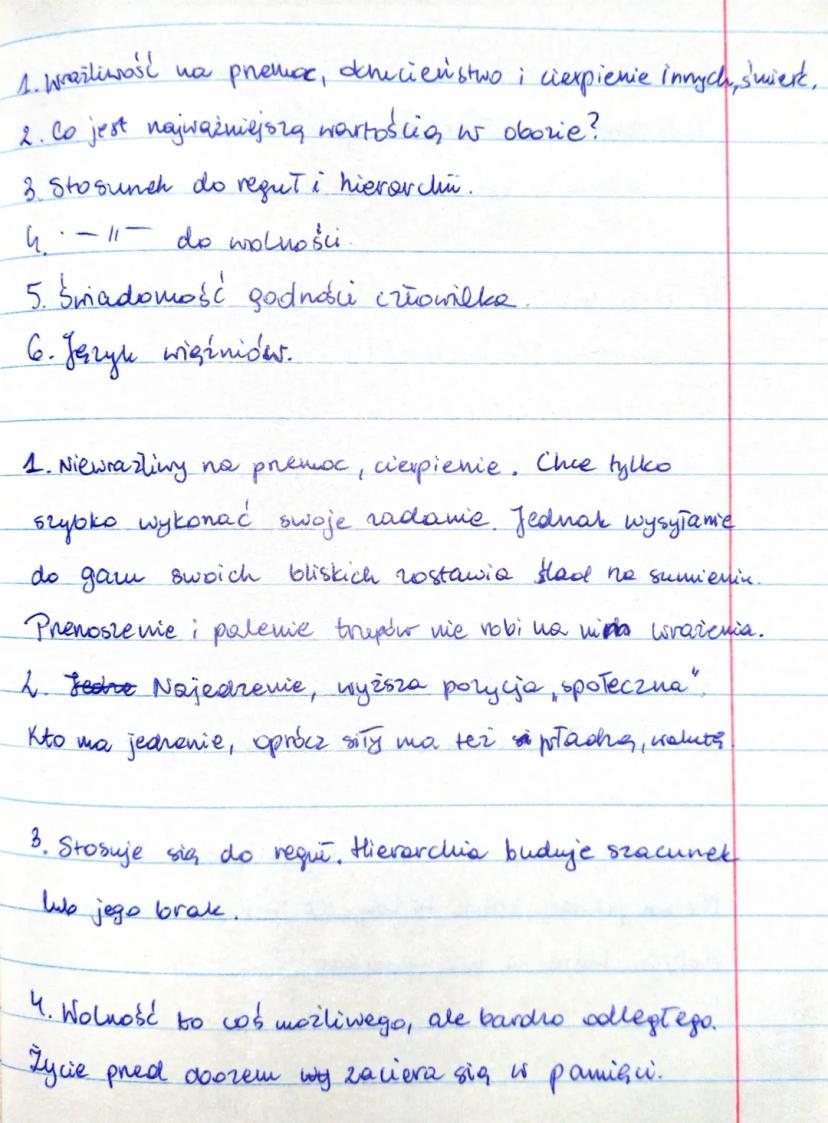 1. Wrażliwość na przemoc, okrucieństwo i cierpienie innych, śmierć.
2. Co jest najważniejszą wartością w obozie?
3. Stosunek do reguł i hierarchii.
4. -〃- do wolności
5. Świadomość godności człowieka.
6. Język więźniów.
1. Niewrażliwy na przemoc, cierpienie. Chce tylko
szybko wykonać swoje zadanie. Jednak wysyłanie
do gazu swoich bliskich zostawia ślad na sumieniu.
Przenoszenie i palenie trupów nie robi na nim wrażenia.
2. Najedzenie, wyższa pozycja „społeczna".
Kto ma jedzenie, oprócz siły ma też władzę, walutę
3. Stosuje się do reguł. Hierarchia buduje szacunek
lub jego brak.
4. Wolność to coś możliwego, ale bardzo odległego.
Życie przed obozem zaciera się w pamięci.